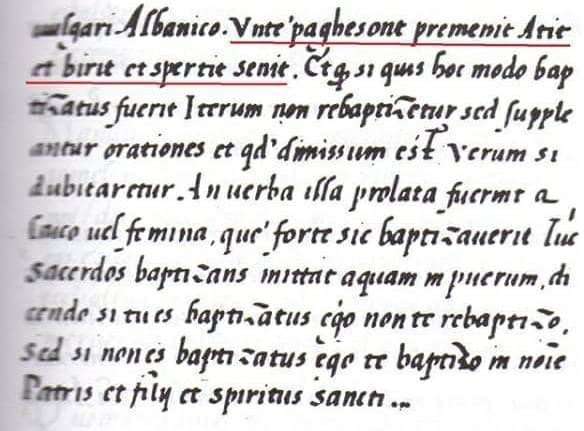 uulgari Albanico. Vnte' paghesont premenit Atit
et birit et spertit senit. Et qͥ si quis hoc modo bap
tizatus fuerit Iterum non rebaptizetur sed supple
antur orationes et qd' dimissum est. Verum si
dubitaretur. An uerba illa prolata fuerint a
laico uel femina, que' forte sic baptizauerit Tuc
Sacerdos baptizans mittat aquam in puerum, di
cendo si tu es baptizatus ego non te rebaptizo,
Sed si non es baptizatus ego te baptizo in noie
Patris et filij et spiritus sancti ...